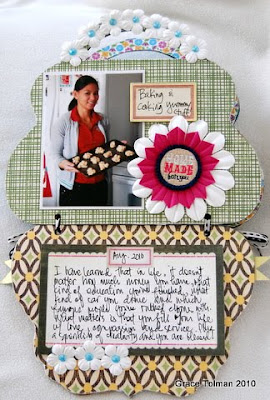 Baking &
cooking yummy
stuff
MADE
Aug. 2010
I have learned that in life, it doesn't
matter how much money you have, what
kind of education you've attained, what
kind of car you drive and which
people you've rubbed elbows with.
What matters is that you fill your life
w/ love, compassion and service. Plus
a sprinkling of creativity and you are blessed.
Grace Tolman 2010